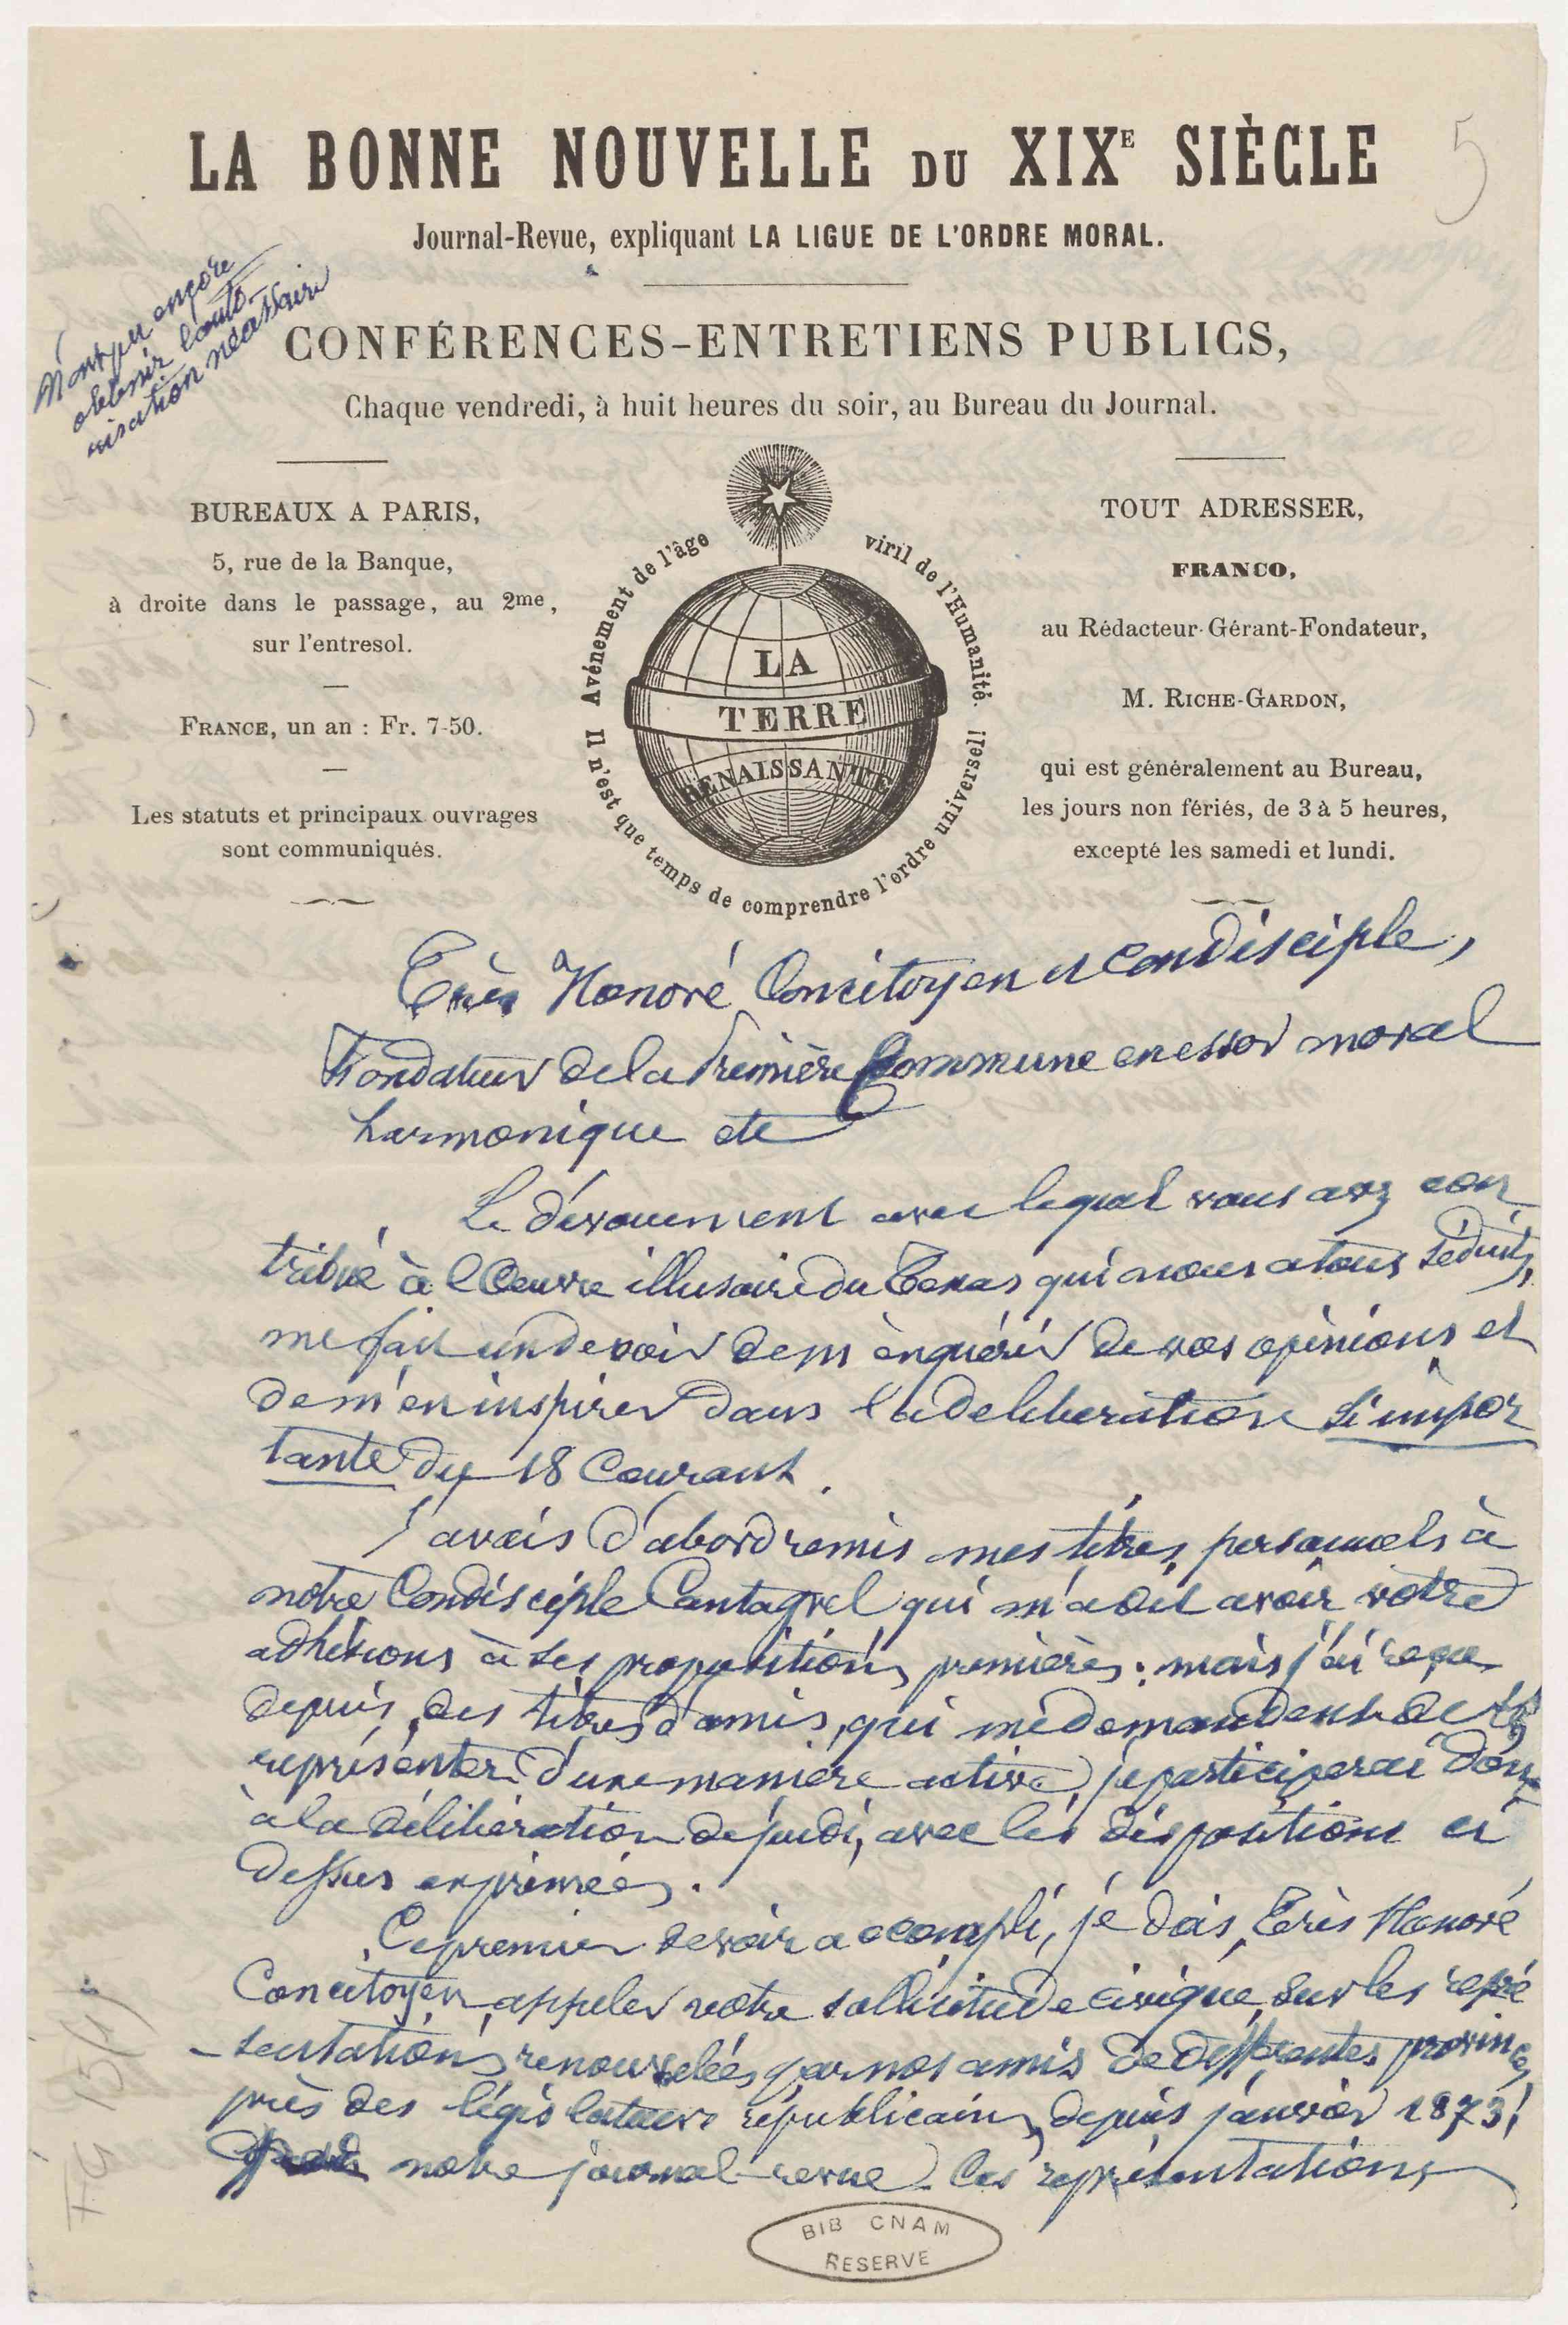 LA BONNE NOUVELLE DU XIXE SIÈCLE
5
Journal-Revue, expliquant LA LIGUE DE L'ORDRE MORAL.
N'ont pu encore
obtenir l'auto-
risation nécessaire
CONFÉRENCES-ENTRETIENS PUBLICS,
Chaque vendredi, à huit heures du soir, au Bureau du Journal.
BUREAUX A PARIS,
5, rue de la Banque,
à droite dans le passage, au 2me,
sur l'entresol.
FRANCE, un an : Fr. 7-50.
Les statuts et principaux ouvrages
sont communiqués.
Avénement de l'âge viril de l'Humanité.
Il n'est que temps de comprendre l'ordre universel!
LA
TERRE
RENAISSANTE
TOUT ADRESSER,
FRANCO,
au Rédacteur-Gérant-Fondateur,
M. RICHE-GARDON,
qui est généralement au Bureau,
les jours non fériés, de 3 à 5 heures,
excepté les samedi et lundi.
Très Honoré Concitoyen et Condisciple,
Fondateur de la Première Commune en essor moral
harmonique etc
Le dévouement avec lequel vous avez con
tribué à l'Oeuvre illusoire du Texas qui nous a tous séduits,
me fait un devoir de m'enquérir de vos opinions et
de m'en inspirer dans la deliberation si impor
tante du 18 Courant.
J'avais d'abord remis mes titres personnels à
notre Condisciple Cantagrel qui m'a dit avoir votre
adhésions à ses propositions premières; mais j'ai reçu
depuis, des titres d'amis, qui me demandent de les
représenter d'une manière active, je participerai donc
à la délibération de jeudi, avec les dispositions ci
dessus exprimées.
Ce premier devoir accompli, je dois, Très Honoré
Concitoyen, appeler votre sollicitude civique sur les repré
-sentations renouvelées par nos amis de différentes provinces
près des législateurs républicains, depuis janvier 1873!
notre journal-revue. Ces représentations
FG 15 (4)
BIB CNAM
RESERVE